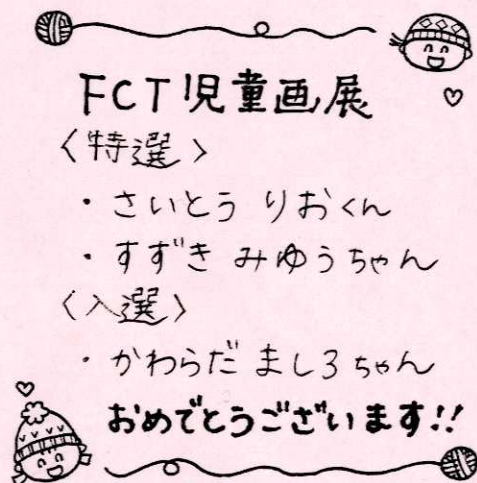 FCT児童画展
〈特選〉
・さいとう りおくん
・すずき みゆうちゃん
〈入選〉
・かわらだ ましろちゃん
おめでとうございます!!